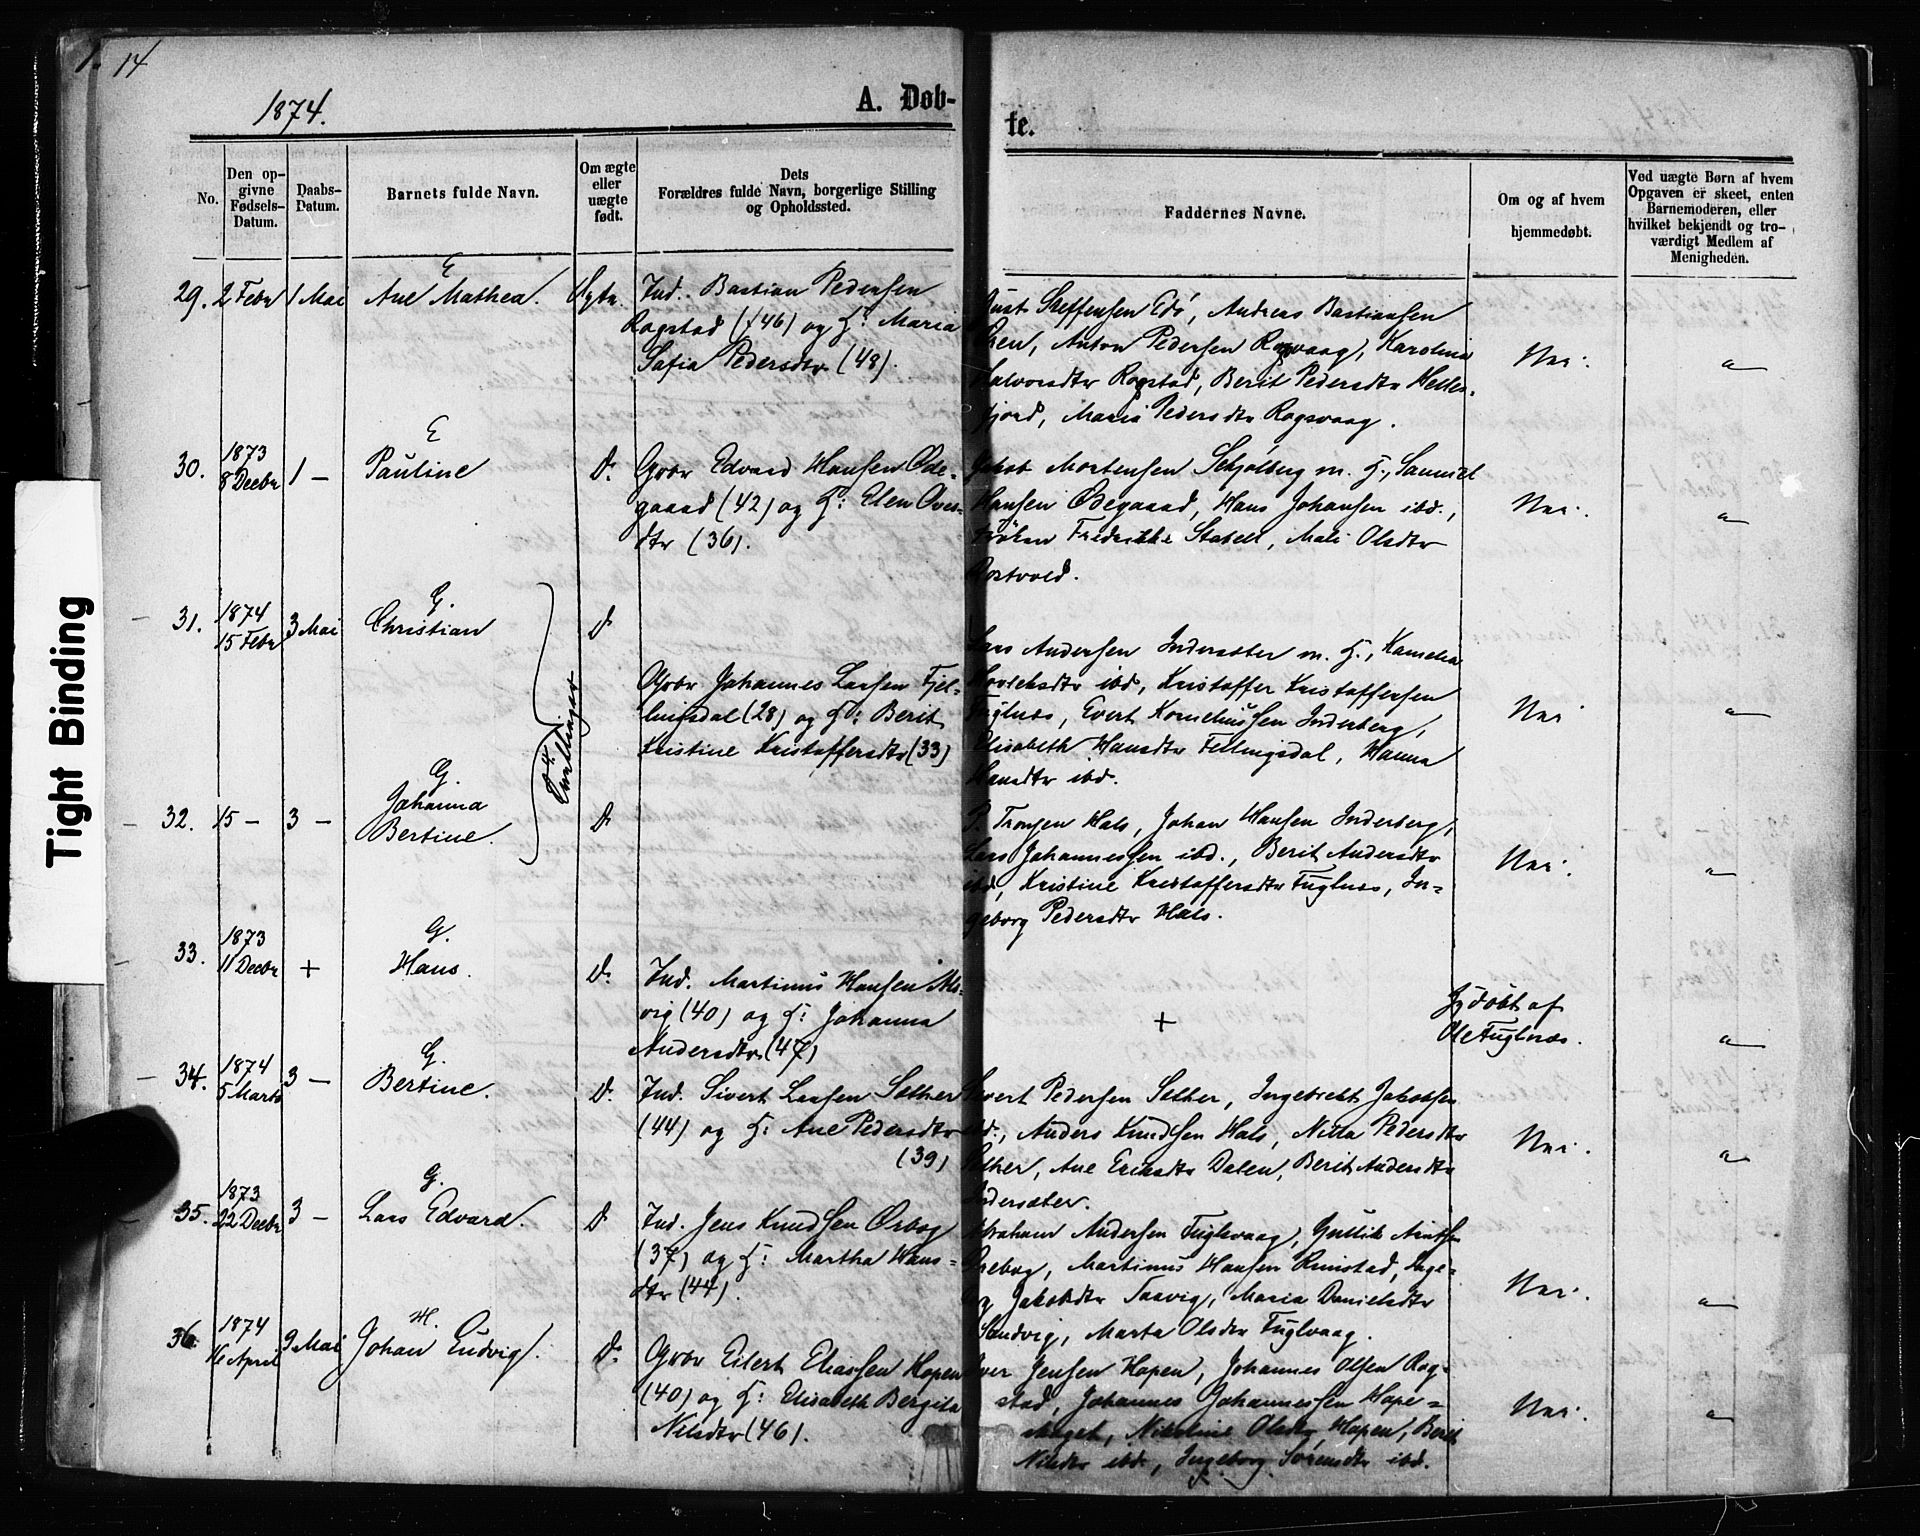 14
1874.
A. Døb-
te.
No.
Den op-
givne
Fødsels-
Datum.
Daabs-
Datum.
Barnets fulde Navn.
Om ægte
eller
uægte
født.
Dets
Forældres fulde Navn, borgerlige Stilling
og Opholdssted.
Faddernes Navne.
Om og af hvem
hjemmedøbt.
Ved uægte Børn af hvem
Opgaven er skeet, enten
Barnemoderen, eller
hvilket bekjendt og tro-
værdigt Medlem af
Menigheden.
E
29. 2 Febr 1 Mai Ane Mathea. Ægte. Ind. Bastian Pedersen
Rogstad (46) og H: Maria
Sofia Pedersdtr (48).
Steffensen Edø, Andreas Bastiansen
Anton Pedersen Rogvaag, Karolina
Halvorsdtr Rogstad, Berit Pedersdtr Helles-
fjord, Maria Pedersdtr Rogsvaag.
Nei.
E
30. 1873
8 Decbr 1 – Pauline D. Gbr Edvard Hansen Øde-
gaard (42) og H: Elen Ove-
dtr (36).
Jakob Mortensen Schjølberg m. H., Samuel
Hansen Ødegaard, Hans Johansen ibd.,
Frøken Fredrikke Stabell, Mali Olsdtr
Rostvold.
Nei.
G.
31. 1874
15 Febr 3 Mai Christian D
Tvillinger
Gbr Johannes Larsen Fjel-
lingsdal (28) og H: Berit
Kristine Kristoffersdtr (33)
Lars Andersen Indersæter m. H., Kamelia
ibd, Kristoffer Kristoffersen
Fuglnes, Evert Korneliussen Inderberg,
Elisabeth Hansdtr Fellingsdal, Hanna
Hansdtr ibd.
Nei
G.
32. 15 – 3 – Johanna
Bertine. D
P. Tronsen Hals, Johan Hansen Inderberg,
Lars Johannessen ibd., Berit Andersdtr
ibd, Kristine Kristoffersdtr Fuglnes, In-
geborg Pedersdtr Hals.
Nei.
G.
33. 1873
11 Decbr + Hans. D. Ind. Martinus Hansen
vig (40) og H: Johanna
Andersdtr (47)
+
Hjdøbt af
Ole Fuglnæs.
G.
34. 1874
5 Marts 3 – Bertine. D. Ind. Sivert Larsen Sether
(44) og H: Ane Pedersdtr
(39)
Sivert Pedersen Sether, Ingebrebt Jakobsen
ibd., Anders Knudsen Hals, Nilla Pedersdtr
Sether, Ane Eriksdtr Dalen, Berit Andersdtr
Indersæter.
Nei.
G.
35. 1873
22 Decbr 3 – Lars Edvard. D Ind. Jens Knudsen Ørbog
(37) og H: Martha Hans-
dtr (44).
Abraham Andersen Fuglevaag, Gullik
Ørebog, Martinus Hansen Rimstad, Inge-
borg Jakobsdtr Taavig, Maria Danielsdtr
Sandvig, Marta Olsdtr Fuglvaag.
Nei.
H.
36. 1874
16 April 9 Mai Johan Ludvig. D. Gbr Eilert Eliassen Hopen
(40) og H: Elisabeth Bergita
Nilsdtr (46).
Iver Jensen Hopen, Johannes Olsen Rog-
stad, Johannes Johannessen Hope-
skaget, Nikoline Olsdtr Hopen, Berit
Nilsdtr ibd., Ingeborg Sørensdtr ibd.
Nei.
Tight Binding